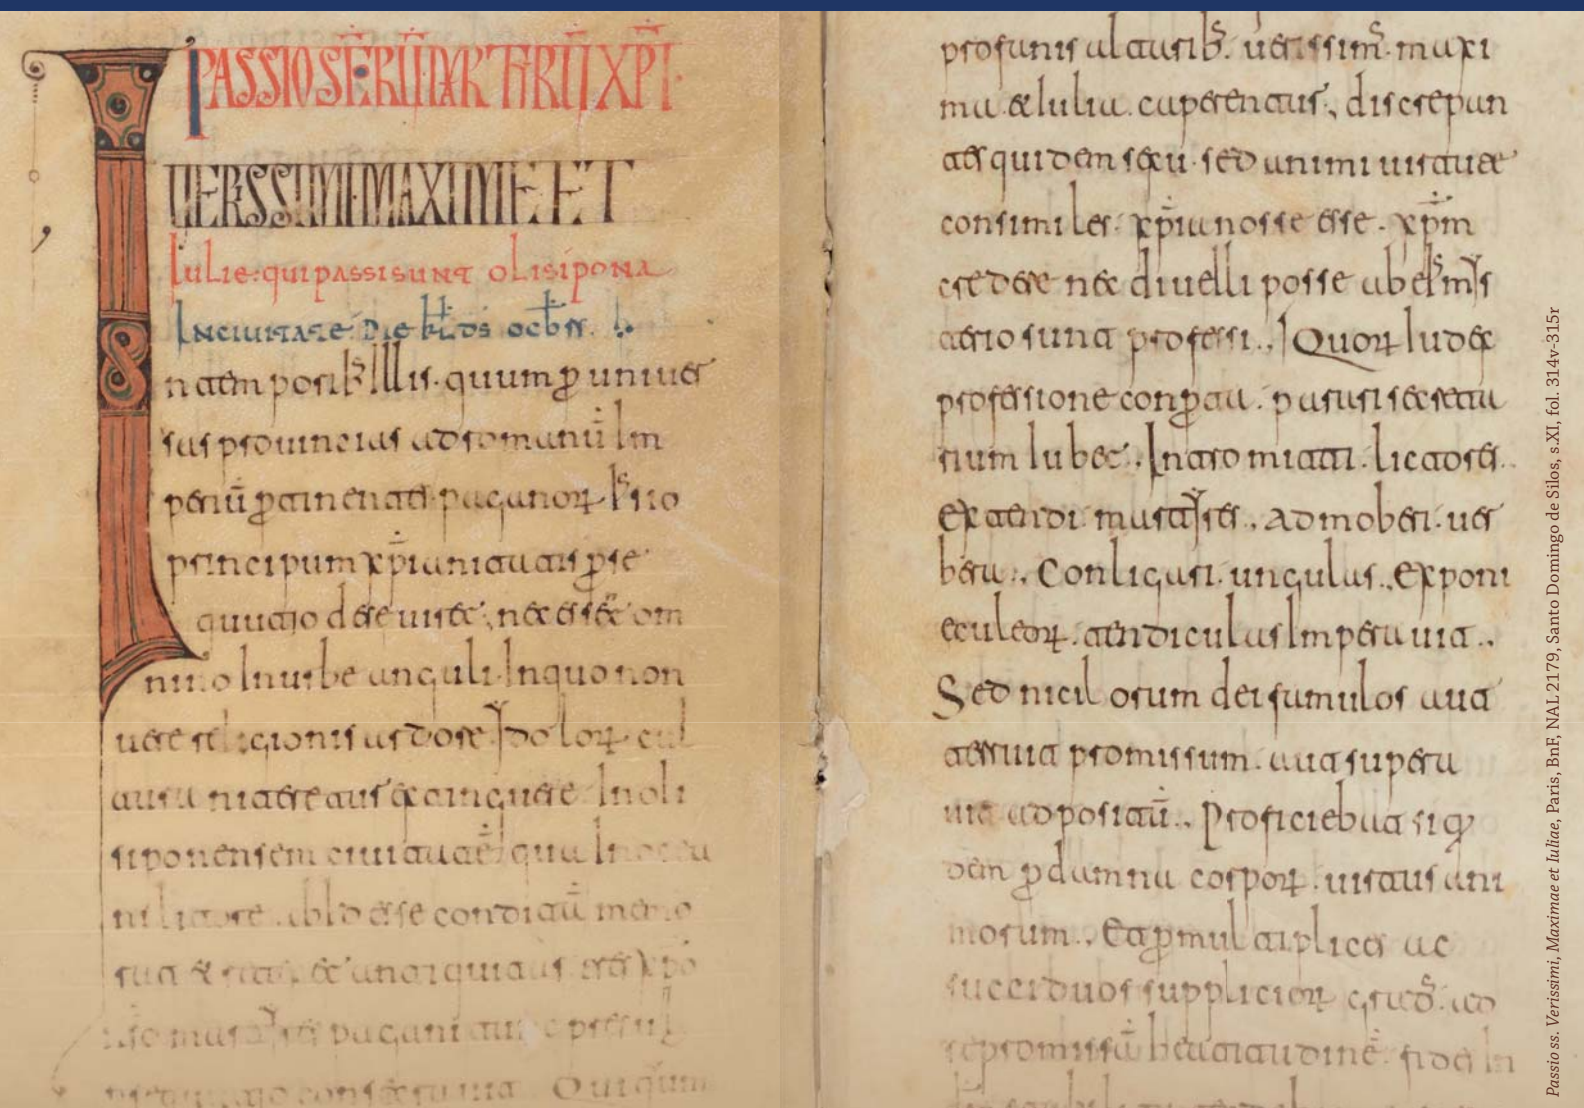 PASSIO SCŌRŪ MARTIRŪ XPĪ·
UERISSIMI·MAXIME·ET
Iulie·qui passi sunt olisipona
In ciuitate die kłds octbrs
n temporibs Illis·quum ꝑ uniuer
sas prouincias ad romanū Im
periū ꝑtinentes paganorꝝ
principum xp̄ianitatis ꝑse
quutio deseuiret·nec esset om
nino In urbe anguli·In quo non
uere religionis ardore Idolorꝝ cul
tura niteretur extinguere In oli
siponensem ciuitatē qua In ocea
ni litore esse conditā memo
pagani
Qui quum
profanis altaribs·uerissims·maxi
ma et Iulia·raperentur·, discrepan
tes quidem sexu·sed animi uirtute
consimiles·xp̄ianos se esse·xp̄m
credere nec diuelli posse ab eius mys
terio sunt professi·, Quorꝝ Iudex
professione conꝑta·parari secreta
rium Iubet·, Intromitti·lictores·
Extendi martyres·, Admoberi·uer
bera·, Conligari·ungulas·, Exponi
eculeorꝝ·tendiculas Imperauit·,
Sed nicil orum dei famulos aut
terruit promissum·aut supera
uit adpositū·, Proficiebat siq
dem ꝑ damna corporꝝ·uirtus ani
morum·, Et ꝑ multiplices ac
succiduos suppliciorꝝ grads·ad
repromissā beatitudinē·fidei In
Passio ss. Verissimi, Maximae et Iuliae, Paris, BnF, NAL 2179, Santo Domingo de Silos, s.XI, fol. 314v-315r